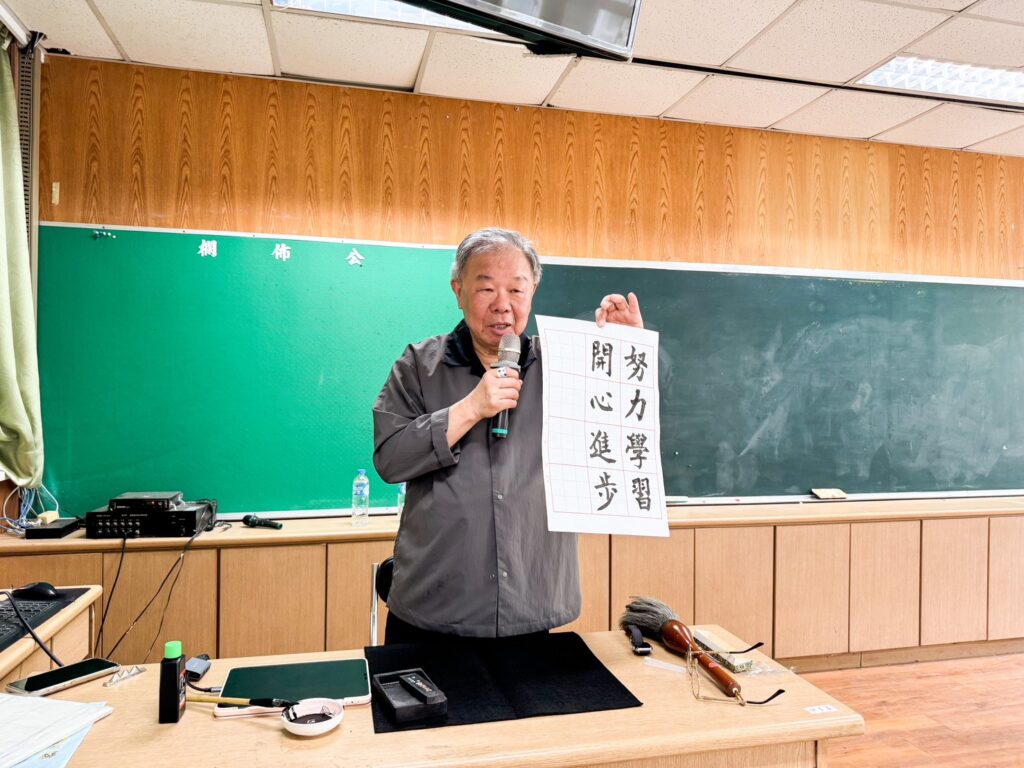 公佈欄
努力學習
開心進步